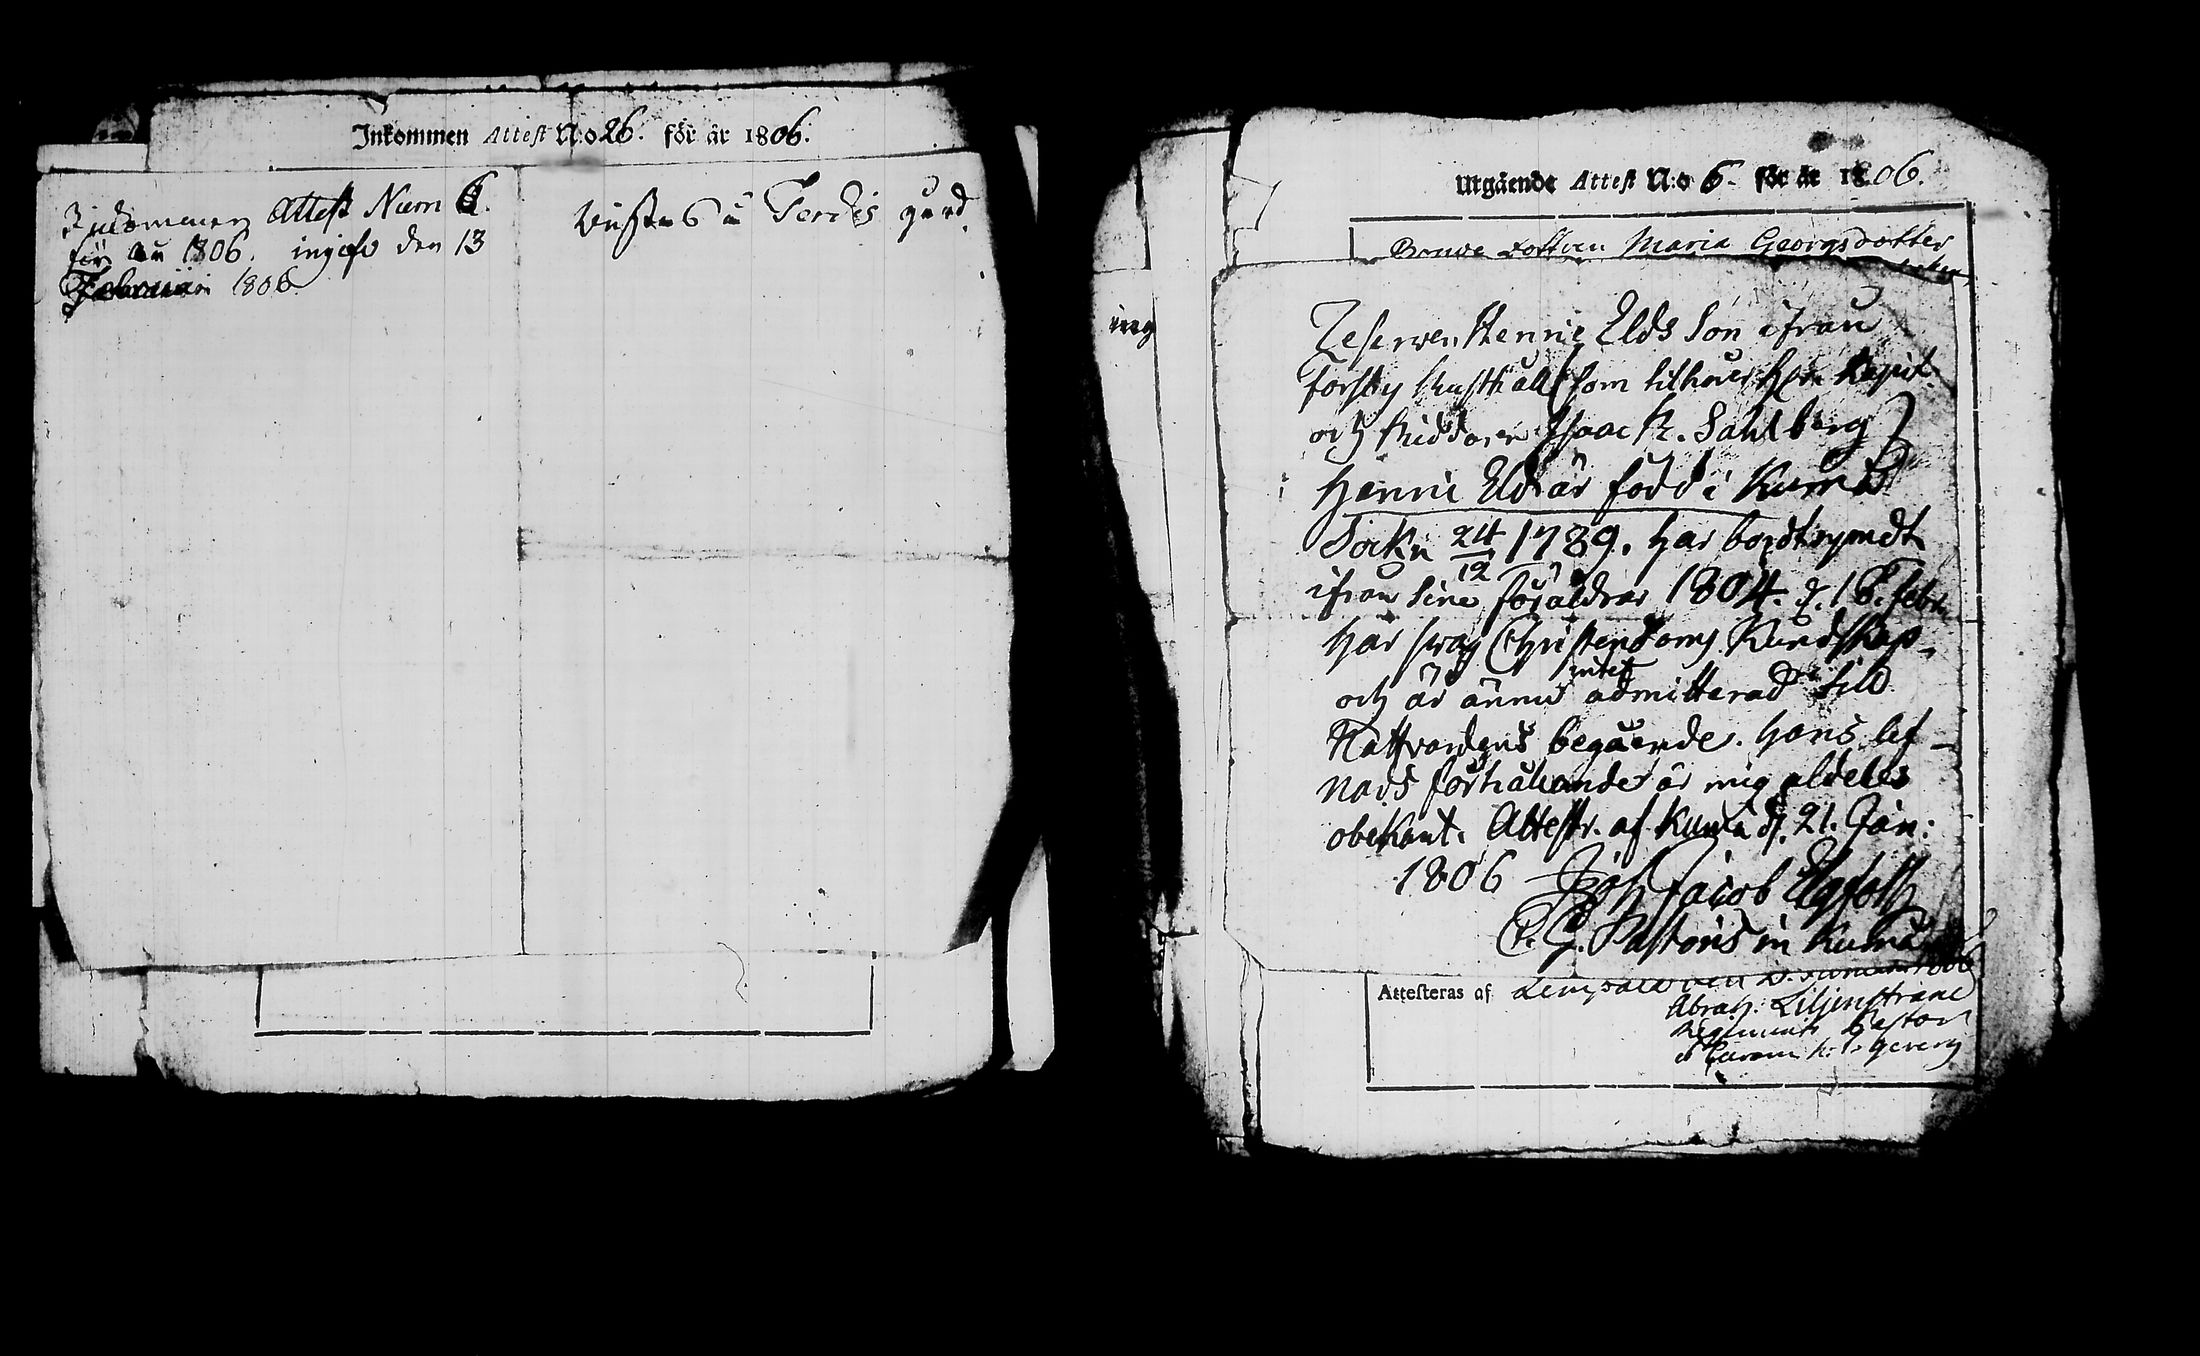 Inkommen Attest N:o 26. för år 1806.
Inkommen Attest Num 6.
för åu 1806. ingifv den 13
Februarii 1806
å gård
Utgående Attest N:o 6. för år 1806.
Bonde Dottren Maria Georgsdotter
ing
Reserven Henric Elds Son ifrån
Forsby Rusthåll (som tilhörer Herr Kapit.
och Riddaren Isaac R. Sahlberg)
Henric Eld är född i Kumo
Sockn 24/12 1789. har bordtrymdt
ifrån sina föräldrar 1804. d. 18. Febr.
har svag Christendoms Kundskap,
och är ännu intet admitterad till
Nattvardens begående. Hans lef-
nads förhållande är mig aldeles
obekant. Attestr. af Kumo d. 21. Jan:
1806 Joh Jacob Elgfoth
C. G. Pastoris in Kumo
Attesteras af 1806
Abrah: Liljenstrand
Regements Pastor